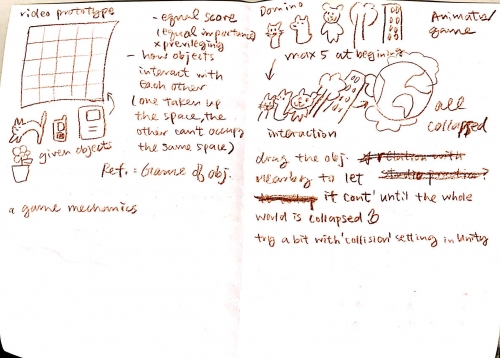 video prototype
- equal score
(equal importance)
x privileging
- how objects
interact with
each other
(one taken up
the space, the
other can't occupy
the same space)
given objects
Ref. = Game of obj.
a game mechanics
Domino
Animate
game
max 5 at begining
all
collapsed
interaction
drag the obj.
nearby to let
it cont' until the whole
world is collapsed
try a bit with 'collision' setting in Unity